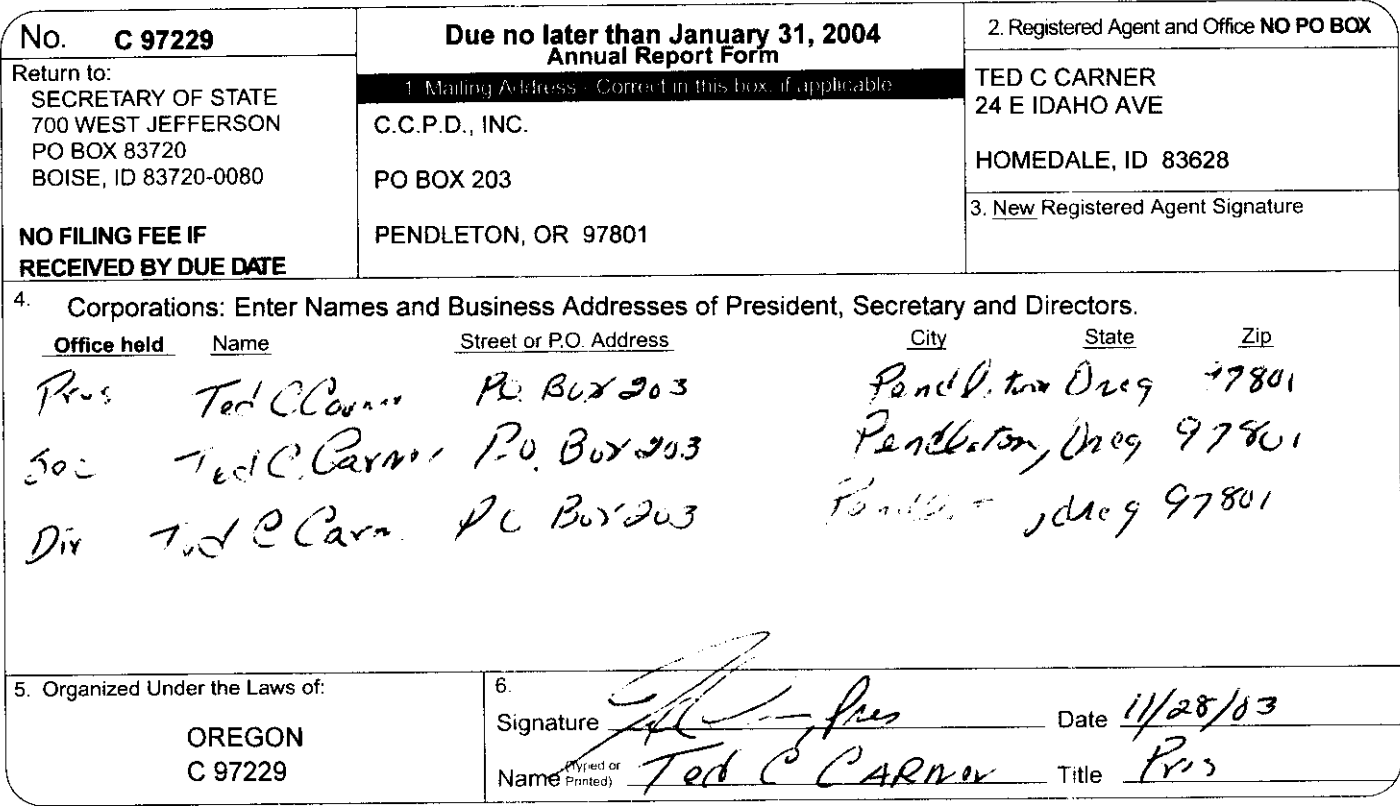 No. C 97229
Return to:
SECRETARY OF STATE
700 WEST JEFFERSON
PO BOX 83720
BOISE, ID 83720-0080
NO FILING FEE IF
RECEIVED BY DUE DATE
Due no later than January 31, 2004
Annual Report Form
1. Mailing Address - Correct in this box, if applicable
C.C.P.D., INC.
PO BOX 203
PENDLETON, OR 97801
2. Registered Agent and Office NO PO BOX
TED C CARNER
24 E IDAHO AVE
HOMEDALE, ID 83628
3. New Registered Agent Signature
4. Corporations: Enter Names and Business Addresses of President, Secretary and Directors.
Office held Name Street or P.O. Address City State Zip
Pres Ted C. Carner P.O. Box 203 Pendleton Oreg 97801
Sec Ted C. Carner P.O. Box 203 Pendleton, Oreg 97801
Div Ted C Carn PO Box 203 Pendlet , Oreg 97801
5. Organized Under the Laws of:
OREGON
C 97229
6.
Signature , Pres Date 11/28/03
Name (Typed or Printed) Ted C CARNer Title Pres